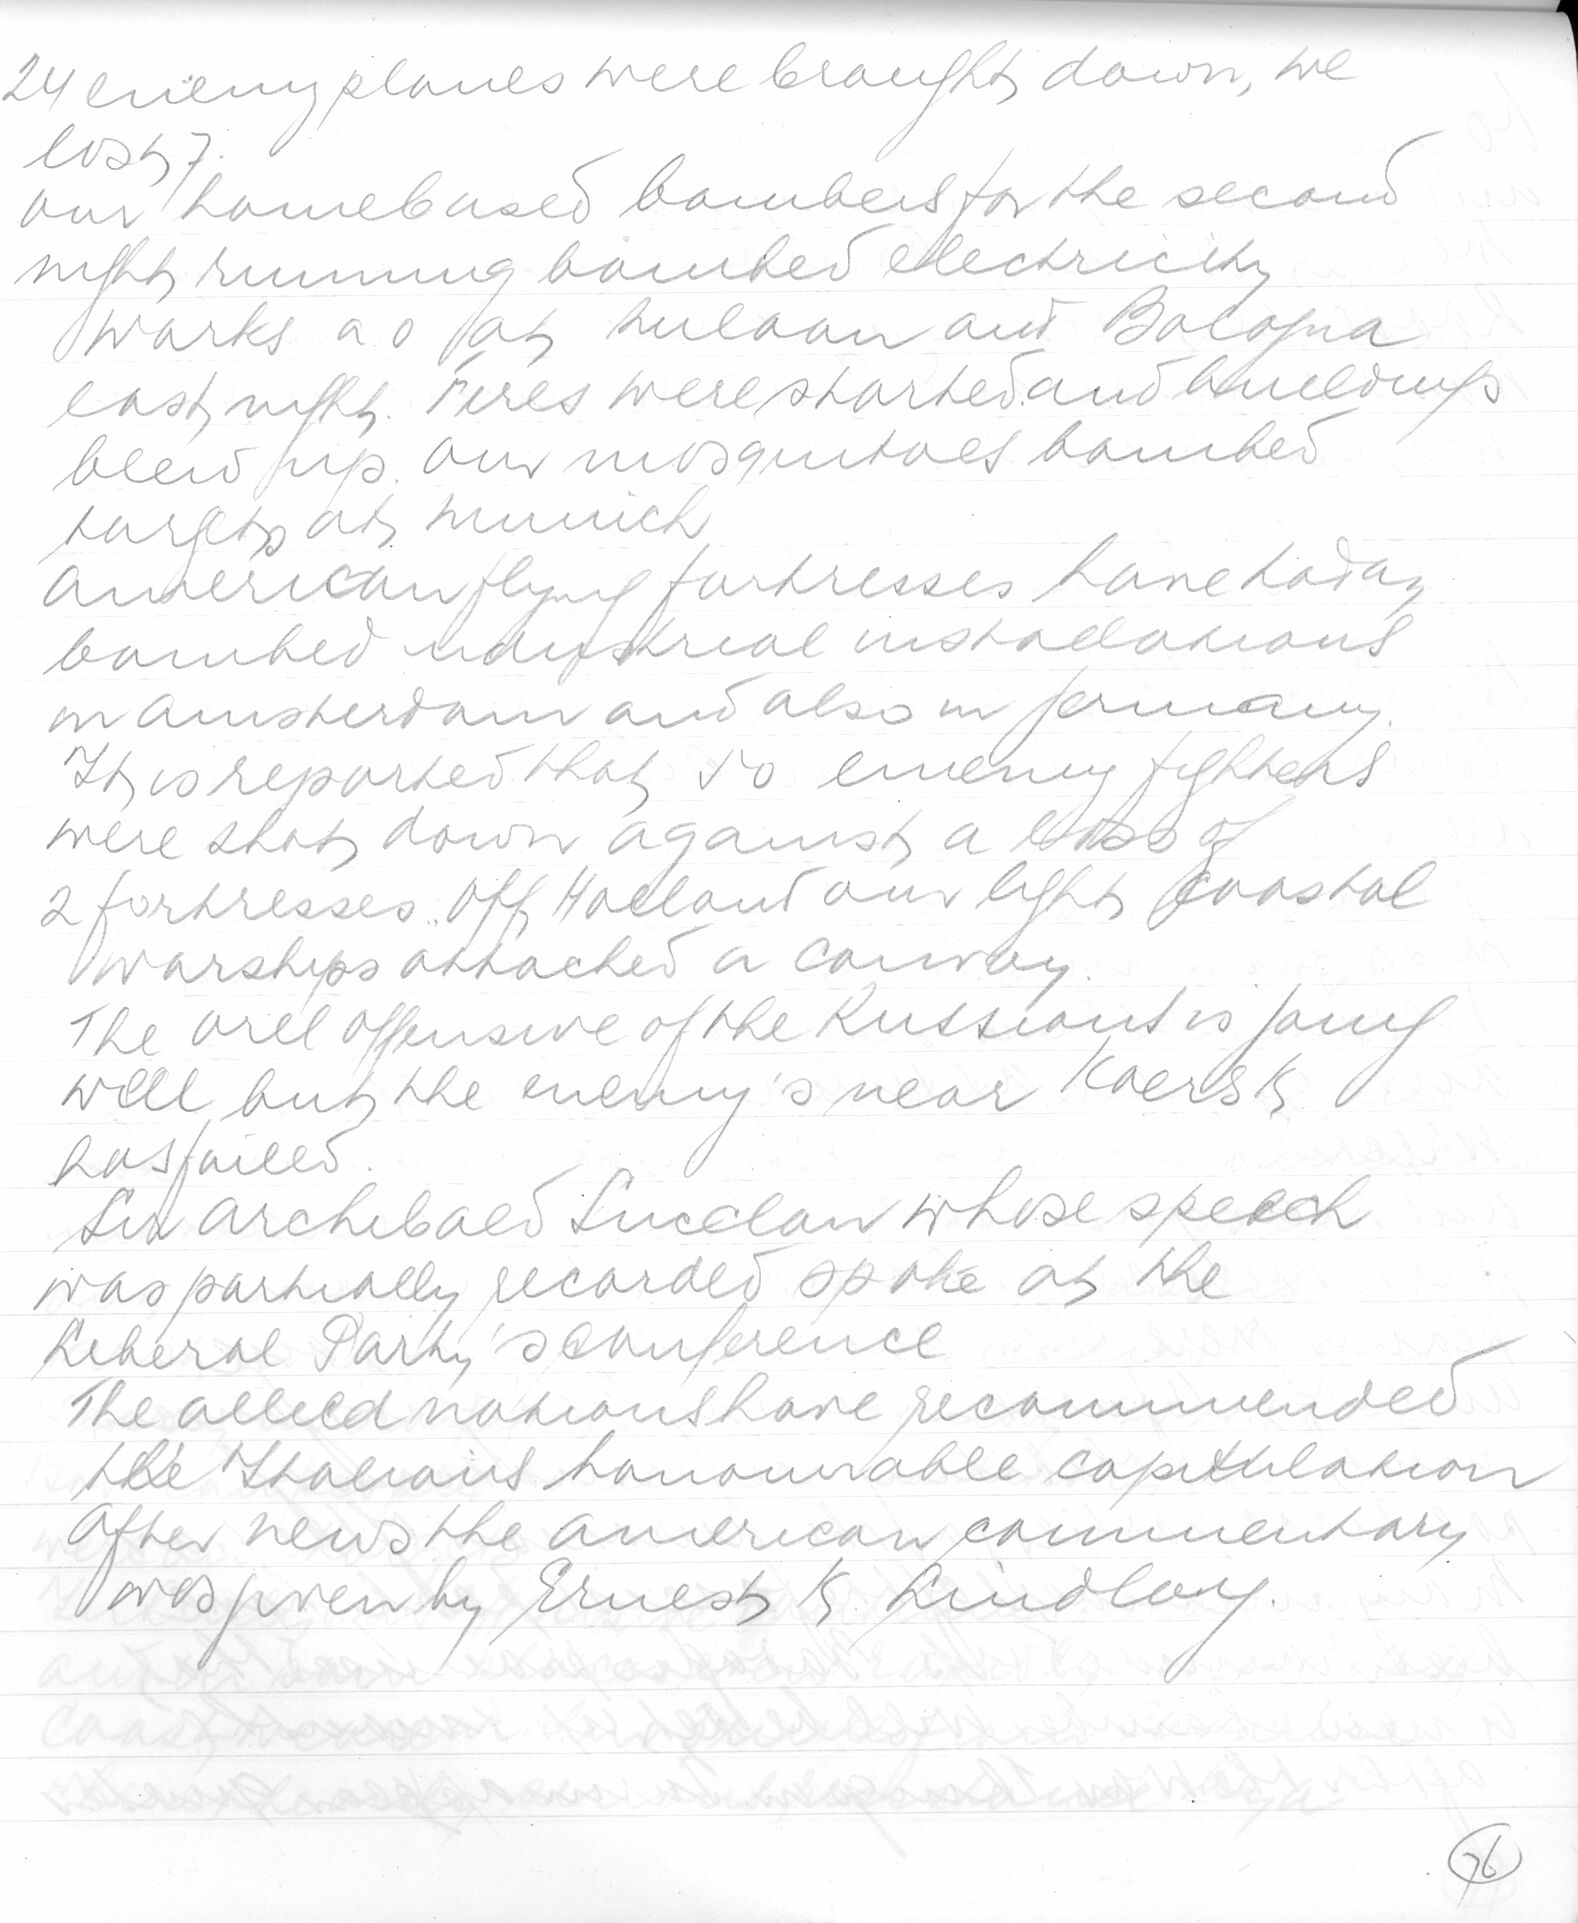 24 enemy planes were brought down, we
lost 7.
our homebased bombers for the second
night running bombed electricity
works a o at and Bologna
last night. Fires were started and buildings
blew up. our mosquitoes bombed
targets at munich
american flying fortresses have today
bombed industrial installations
in amsterdam and also in germany.
It is reported that 50 enemy fighters
were shot down against a loss of
2 fortresses. Off Holland our light coastal
warships attacked a convoy.
The orel offensive of the Russians is going
well but the enemy's near Koersk
has failed.
Sir archibald whose speech
was partially recorded spoke at the
Liberal Party's conference
The allied nations have recommended
the Italians honourable capitulation
After news the american commentary
was given by Ernest K. Lindley.
76